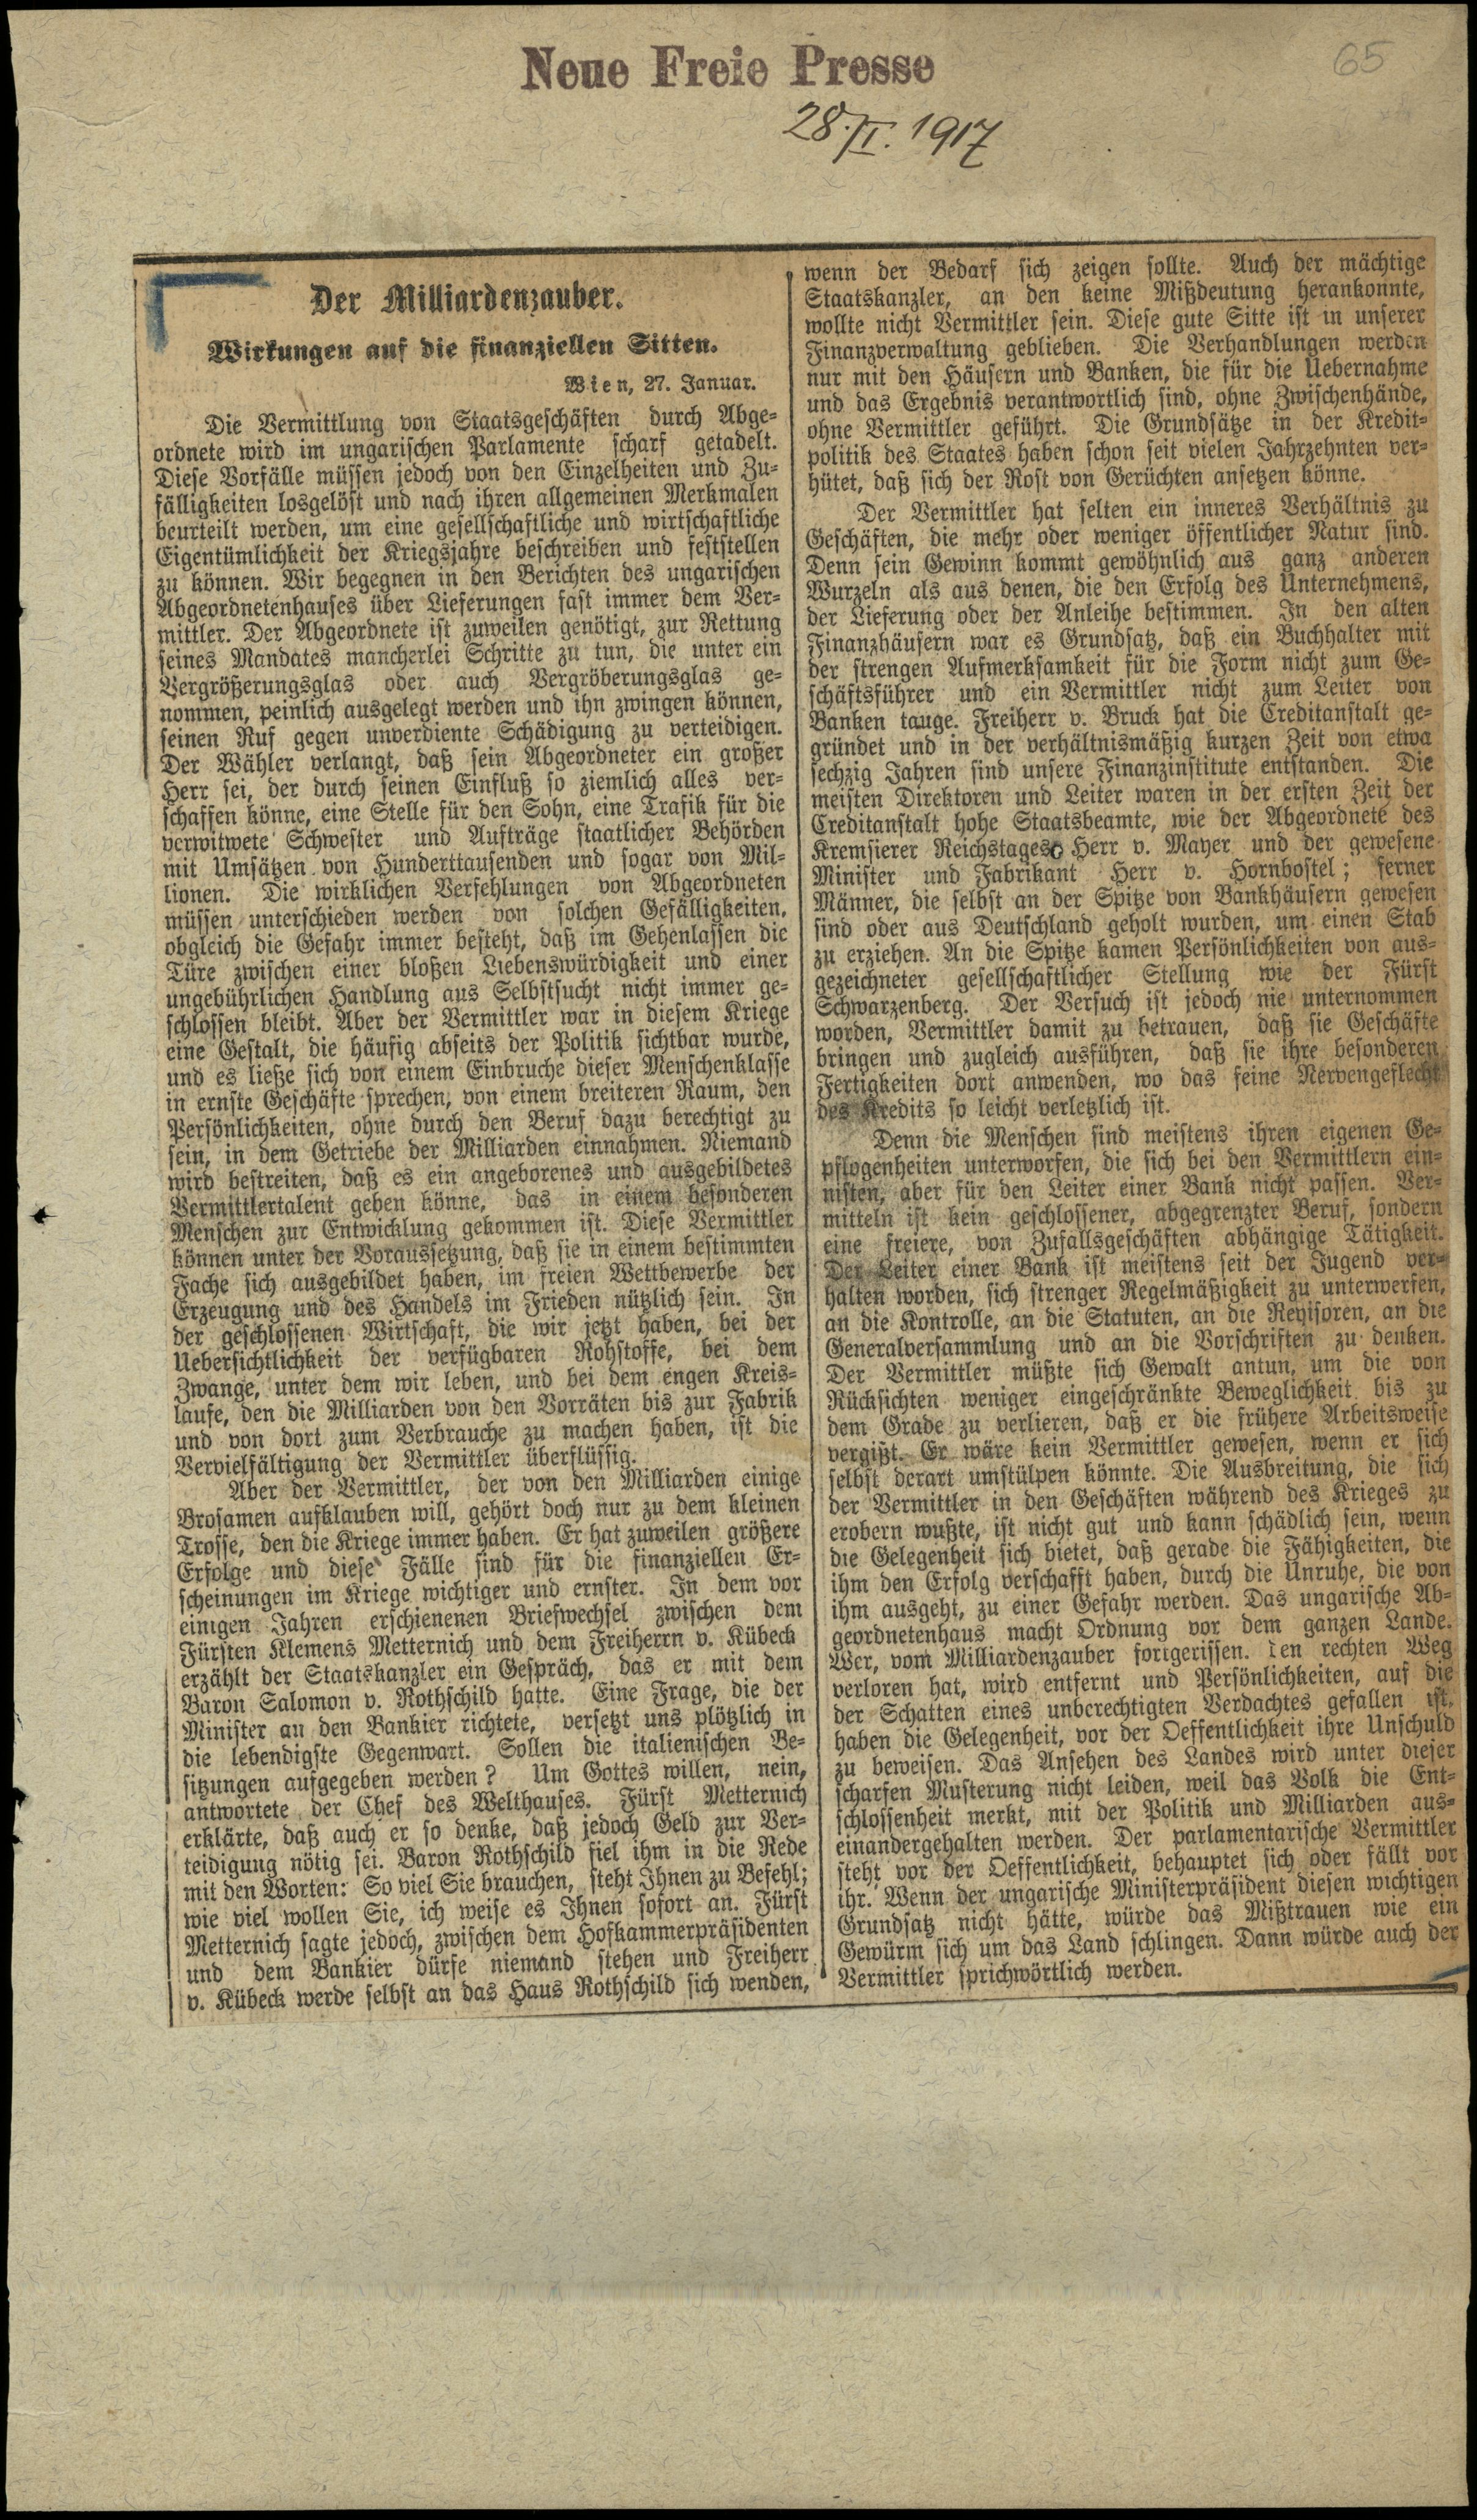 Neue Freie Presse
65
28./I. 1917
Der Milliardenzauber.
Wirkungen auf die finanziellen Sitten.
Wien, 27. Januar.
Die Vermittlung von Staatsgeschäften durch Abge-
ordnete wird im ungarischen Parlamente scharf getadelt.
Diese Vorfälle müssen jedoch von den Einzelheiten und Zu-
fälligkeiten losgelöst und nach ihren allgemeinen Merkmalen
beurteilt werden, um eine gesellschaftliche und wirtschaftliche
Eigentümlichkeit der Kriegsjahre beschreiben und feststellen
zu können. Wir begegnen in den Berichten des ungarischen
Abgeordnetenhauses über Lieferungen fast immer dem Ver-
mittler. Der Abgeordnete ist zuweilen genötigt, zur Rettung
seines Mandates mancherlei Schritte zu tun, die unter ein
Vergrößerungsglas oder auch Vergröberungsglas ge-
nommen, peinlich ausgelegt werden und ihn zwingen können,
seinen Ruf gegen unverdiente Schädigung zu verteidigen.
Der Wähler verlangt, daß sein Abgeordneter ein großer
Herr sei, der durch seinen Einfluß so ziemlich alles ver-
schaffen könne, eine Stelle für den Sohn, eine Trafik für die
verwitwete Schwester und Aufträge staatlicher Behörden
mit Umsätzen von Hunderttausenden und sogar von Mil-
lionen. Die wirklichen Verfehlungen von Abgeordneten
müssen unterschieden werden von solchen Gefälligkeiten,
obgleich die Gefahr immer besteht, daß im Gehenlassen die
Türe zwischen einer bloßen Liebenswürdigkeit und einer
ungebührlichen Handlung aus Selbstsucht nicht immer ge-
schlossen bleibt. Aber der Vermittler war in diesem Kriege
eine Gestalt, die häufig abseits der Politik sichtbar wurde,
und es ließe sich von einem Einbruche dieser Menschenklasse
in ernste Geschäfte sprechen, von einem breiteren Raum, den
Persönlichkeiten, ohne durch den Beruf dazu berechtigt zu
sein, in dem Getriebe der Milliarden einnahmen. Niemand
wird bestreiten, daß es ein angeborenes und ausgebildetes
Vermittlertalent geben könne, das in einem besonderen
Menschen zur Entwicklung gekommen ist. Diese Vermittler
können unter der Voraussetzung, daß sie in einem bestimmten
Fache sich ausgebildet haben, im freien Wettbewerbe der
Erzeugung und des Handels im Frieden nützlich sein. In
der geschlossenen Wirtschaft, die wir jetzt haben, bei der
Uebersichtlichkeit der verfügbaren Rohstoffe, bei dem
Zwange, unter dem wir leben, und bei dem engen Kreis-
laufe, den die Milliarden von den Vorräten bis zur Fabrik
und von dort zum Verbrauche zu machen haben, ist die
Vervielfältigung der Vermittler überflüssig.
Aber der Vermittler, der von den Milliarden einige
Brosamen aufklauben will, gehört doch nur zu dem kleinen
Trosse, den die Kriege immer haben. Er hat zuweilen größere
Erfolge und diese Fälle sind für die finanziellen Er-
scheinungen im Kriege wichtiger und ernster. In dem vor
einigen Jahren erschienenen Briefwechsel zwischen dem
Fürsten Klemens Metternich und dem Freiherrn v. Kübeck
erzählt der Staatskanzler ein Gespräch, das er mit dem
Baron Salomon v. Rothschild hatte. Eine Frage, die der
Minister an den Bankier richtete, versetzt uns plötzlich in
die lebendigste Gegenwart. Sollen die italienischen Be-
sitzungen aufgegeben werden? Um Gottes willen, nein,
antwortete der Chef des Welthauses. Fürst Metternich
erklärte, daß auch er so denke, daß jedoch Geld zur Ver-
teidigung nötig sei. Baron Rothschild fiel ihm in die Rede
mit den Worten: So viel Sie brauchen, steht Ihnen zu Befehl;
wie viel wollen Sie, ich weise es Ihnen sofort an. Fürst
Metternich sagte jedoch, zwischen dem Hofkammerpräsidenten
und dem Bankier dürfe niemand stehen und Freiherr
v. Kübeck werde selbst an das Haus Rothschild sich wenden,
wenn der Bedarf sich zeigen sollte. Auch der mächtige
Staatskanzler, an den keine Mißdeutung herankonnte,
wollte nicht Vermittler sein. Diese gute Sitte ist in unserer
Finanzverwaltung geblieben. Die Verhandlungen werden
nur mit den Häusern und Banken, die für die Uebernahme
und das Ergebnis verantwortlich sind, ohne Zwischenhände,
ohne Vermittler geführt. Die Grundsätze in der Kredit-
politik des Staates haben schon seit vielen Jahrzehnten ver-
hütet, daß sich der Rost von Gerüchten ansetzen könne.
Der Vermittler hat selten ein inneres Verhältnis zu
Geschäften, die mehr oder weniger öffentlicher Natur sind.
Denn sein Gewinn kommt gewöhnlich aus ganz anderen
Wurzeln als aus denen, die den Erfolg des Unternehmens,
der Lieferung oder der Anleihe bestimmen. In den alten
Finanzhäusern war es Grundsatz, daß ein Buchhalter mit
der strengen Aufmerksamkeit für die Form nicht zum Ge-
schäftsführer und ein Vermittler nicht zum Leiter von
Banken tauge. Freiherr v. Bruck hat die Creditanstalt ge-
gründet und in der verhältnismäßig kurzen Zeit von etwa
sechzig Jahren sind unsere Finanzinstitute entstanden. Die
meisten Direktoren und Leiter waren in der ersten Zeit der
Creditanstalt hohe Staatsbeamte, wie der Abgeordnete des
Kremsierer Reichstages Herr v. Mayer und der gewesene
Minister und Fabrikant Herr v. Hornbostel; ferner
Männer, die selbst an der Spitze von Bankhäusern gewesen
sind oder aus Deutschland geholt wurden, um einen Stab
zu erziehen. An die Spitze kamen Persönlichkeiten von aus-
gezeichneter gesellschaftlicher Stellung wie der Fürst
Schwarzenberg. Der Versuch ist jedoch nie unternommen
worden, Vermittler damit zu betrauen, daß sie Geschäfte
bringen und zugleich ausführen, daß sie ihre besonderen
Fertigkeiten dort anwenden, wo das feine Nervengeflecht
des Kredits so leicht verletzlich ist.
Denn die Menschen sind meistens ihren eigenen Ge-
pflogenheiten unterworfen, die sich bei den Vermittlern ein-
nisten, aber für den Leiter einer Bank nicht passen. Ver-
mitteln ist kein geschlossener, abgegrenzter Beruf, sondern
eine freiere, von Zufallsgeschäften abhängige Tätigkeit.
Der Leiter einer Bank ist meistens seit der Jugend ver-
halten worden, sich strenger Regelmäßigkeit zu unterwerfen,
an die Kontrolle, an die Statuten, an die Revisoren, an die
Generalversammlung und an die Vorschriften zu denken.
Der Vermittler müßte sich Gewalt antun, um die von
Rücksichten weniger eingeschränkte Beweglichkeit bis zu
dem Grade zu verlieren, daß er die frühere Arbeitsweise
vergißt. Er wäre kein Vermittler gewesen, wenn er sich
selbst derart umstülpen könnte. Die Ausbreitung, die sich
der Vermittler in den Geschäften während des Krieges zu
erobern wußte, ist nicht gut und kann schädlich sein, wenn
die Gelegenheit sich bietet, daß gerade die Fähigkeiten, die
ihm den Erfolg verschafft haben, durch die Unruhe, die von
ihm ausgeht, zu einer Gefahr werden. Das ungarische Ab-
geordnetenhaus macht Ordnung vor dem ganzen Lande.
Wer, vom Milliardenzauber forigerissen. den rechten Weg
verloren hat, wird entfernt und Persönlichkeiten, auf die
der Schatten eines unberechtigten Verdachtes gefallen ist,
haben die Gelegenheit, vor der Oeffentlichkeit ihre Unschuld
zu beweisen. Das Ansehen des Landes wird unter dieser
scharfen Musterung nicht leiden, weil das Volk die Ent-
schlossenheit merkt, mit der Politik und Milliarden aus-
einandergehalten werden. Der parlamentarische Vermittler
steht vor der Oeffentlichkeit, behauptet sich oder fällt vor
ihr. Wenn der ungarische Ministerpräsident diesen wichtigen
Grundsatz nicht hätte, würde das Mißtrauen wie ein
Gewürm sich um das Land schlingen. Dann würde auch der
Vermittler sprichwörtlich werden.